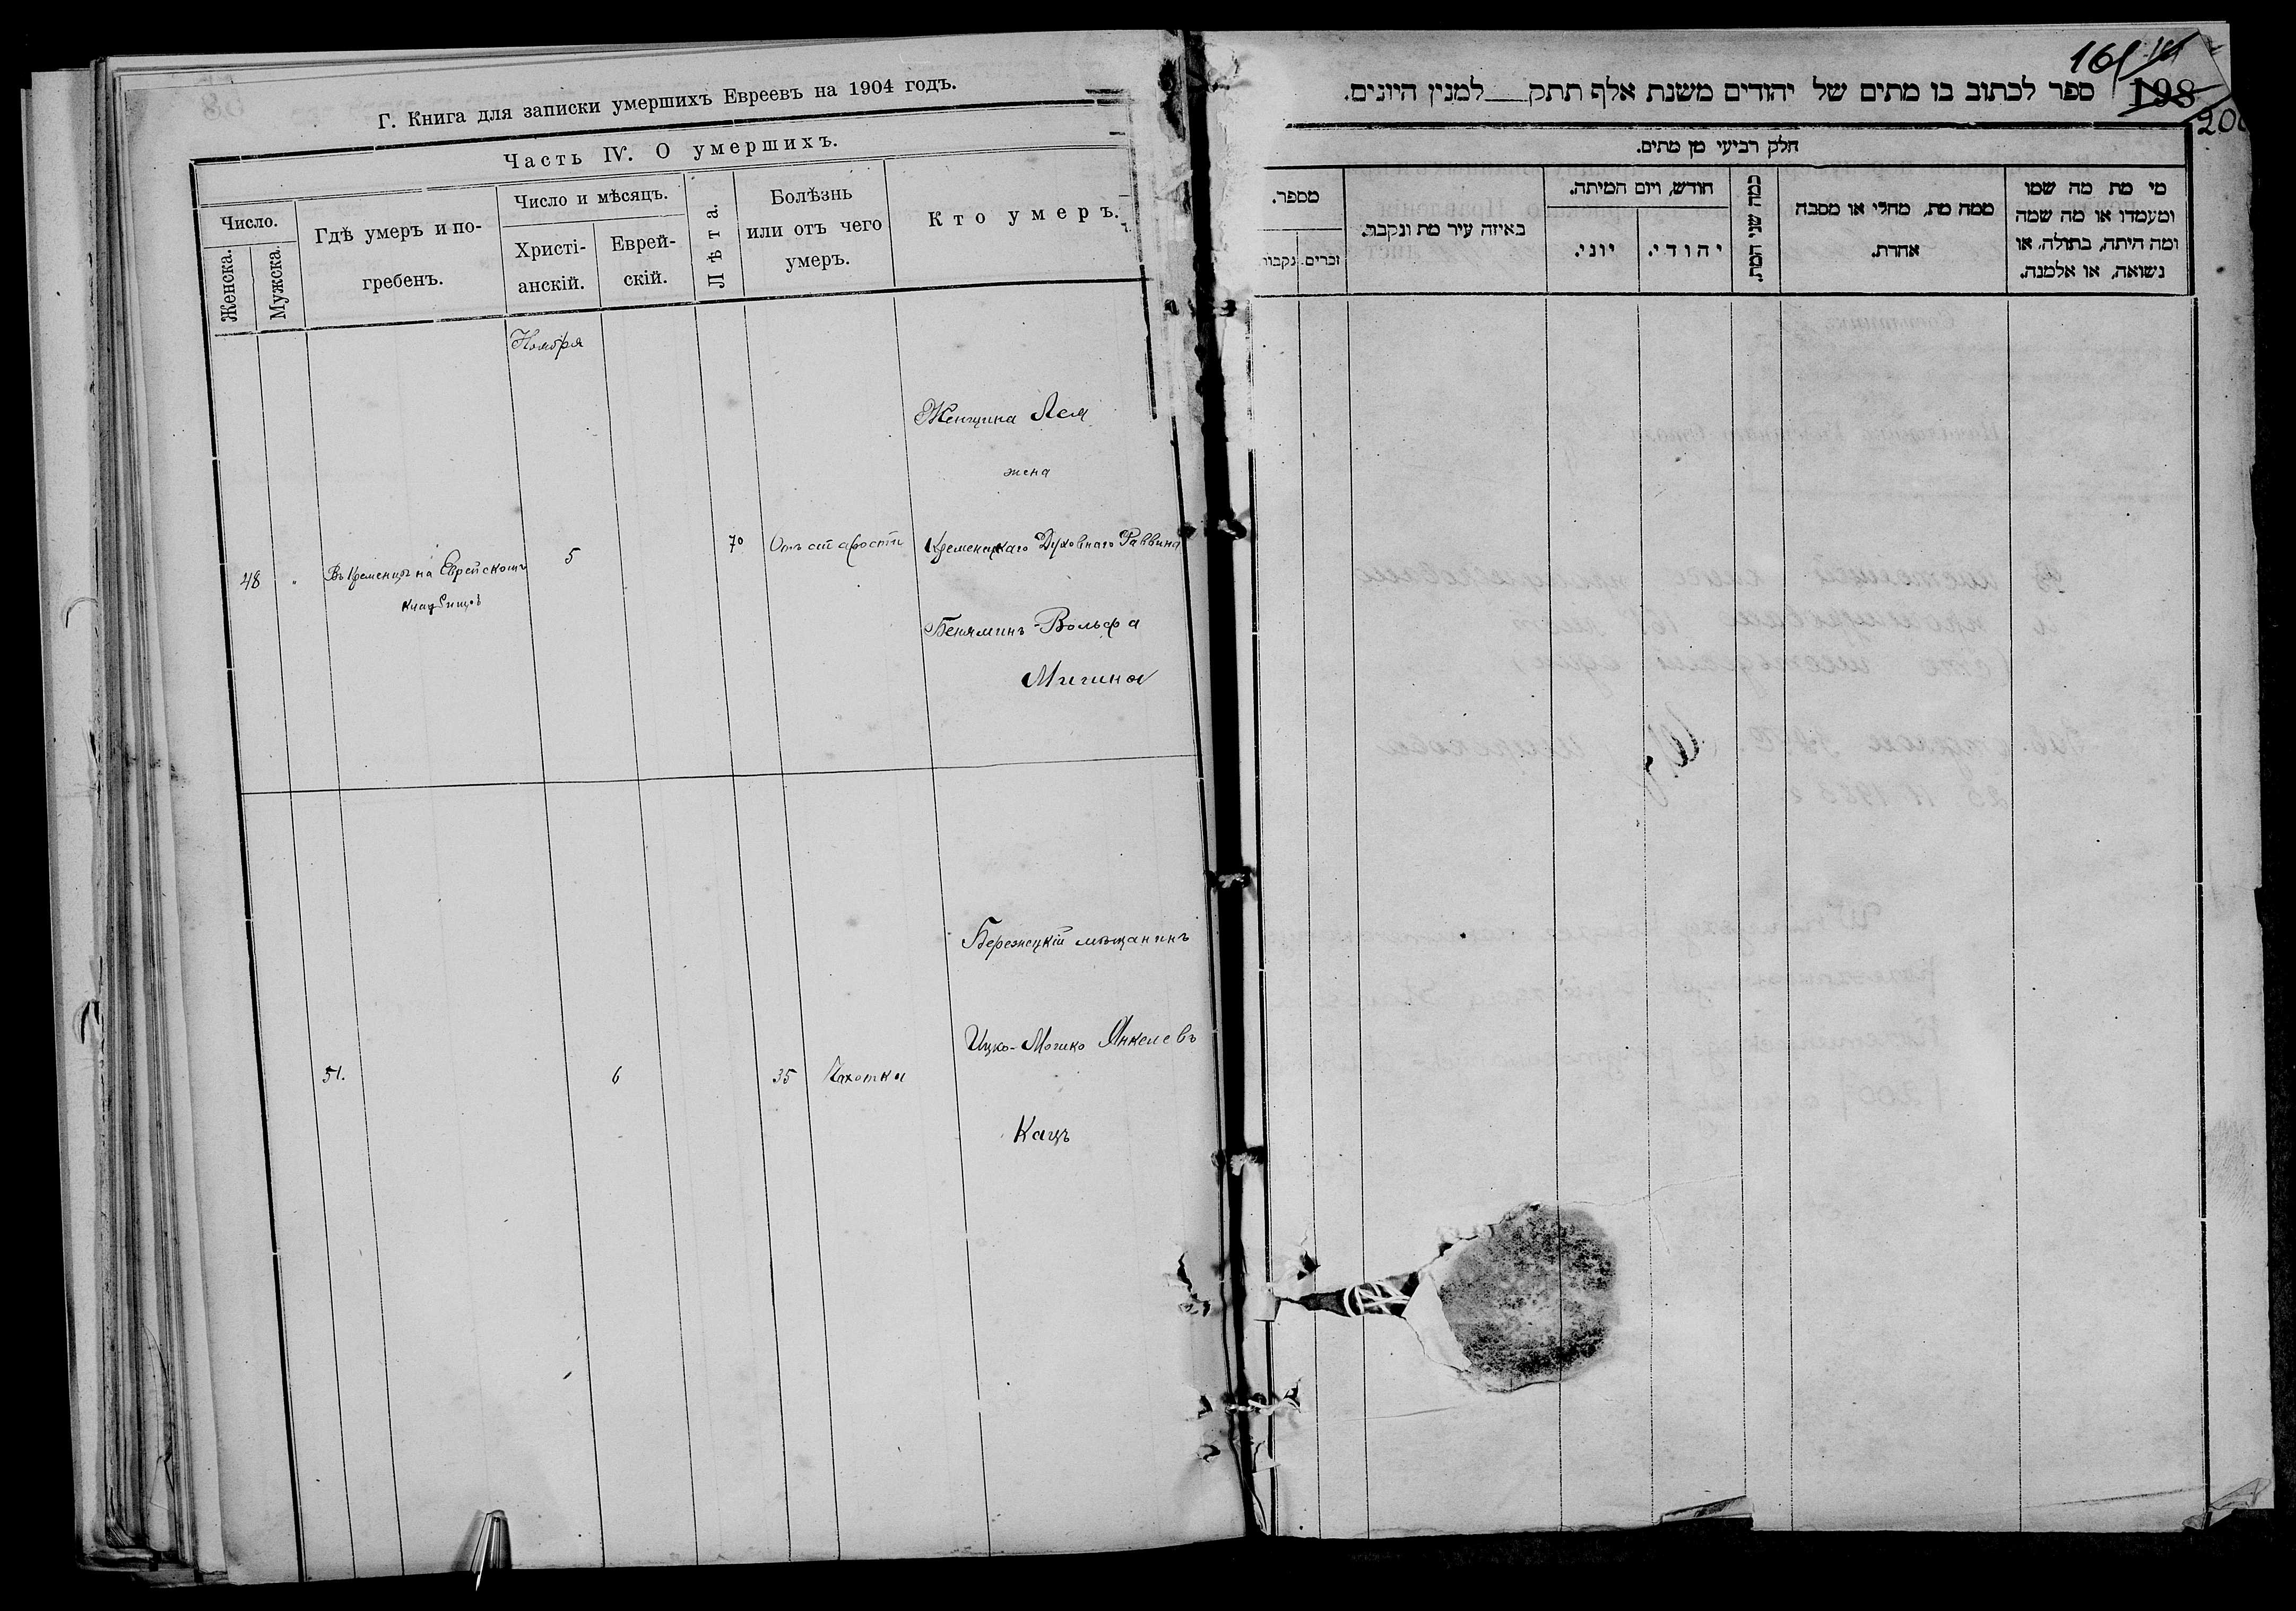 Г. Книга для записки умершихъ Евреевъ на 1904 годъ.
Часть IV. О умершихъ.
Число.
Женска.
Мужска.
Гдѣ умеръ и по-
гребенъ.
Число и мѣсяцъ.
Христі-
анскій.
Еврей-
скій.
Лѣта.
Болѣзнь
или отъ чего
умеръ.
Кто умеръ.
Ноября
48
"
Въ Кременцѣ на Еврейскомъ
кладбищѣ
5
70
Отъ старости
Женщина Лея
жена
Кременецкаго Духовнаго Раввина
Беньяминъ-Вольфа
51.
6
35
Чахотка
Бережецкій мѣщанинъ
Ицко-Мошко Янкелевъ
Кацъ
161
198
200
ספר לכתוב בו מתים של יהודים משנת אלף תתק___למנין היונים.
חלק רביעי מן מתים.
מספר.
נקבות
זכרים.
באיזה עיר מת ונקבר.
חודש, ויום המיתה.
יוני.
יהודי.
כמה שני המת.
ממה מת, מחלי או מסבה
אחרת.
מי מת מה שמו
ומעמדו או מה שמה
ומה היתה, בתולה, או
נשואה, או אלמנה.